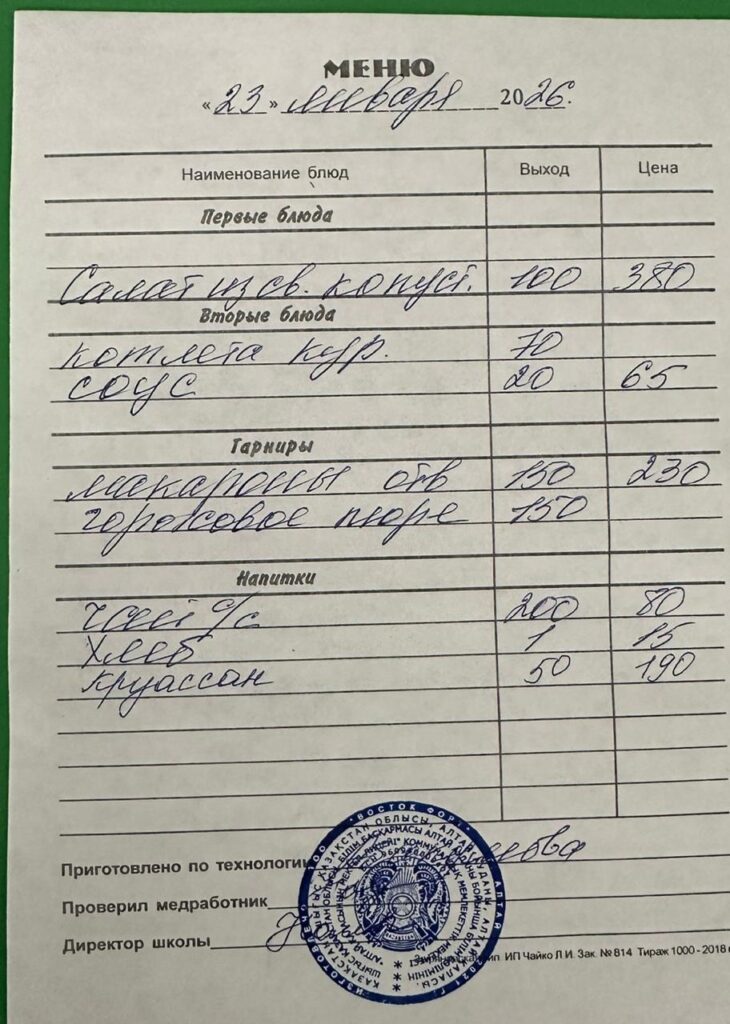 МЕНЮ
« 23 » января 20 26.
Наименование блюд Выход Цена
Первые блюда
Салат из св. копуст. 100 380
Вторые блюда
котлета кур. 70
соус 20 65
Гарниры
макароны отв 150 230
гороховое пюре 150
Напитки
чай с/с 200 80
Хлеб 1 15
круассан 50 190
Приготовлено по технологии
Проверил медработник
Директор школы
ИП Чайко Л И. Зак. № 814 Тираж 1000 - 2018
ВОСТОК ФОРТ
АЛТАЙ
ИЗГОТОВЛЕНО